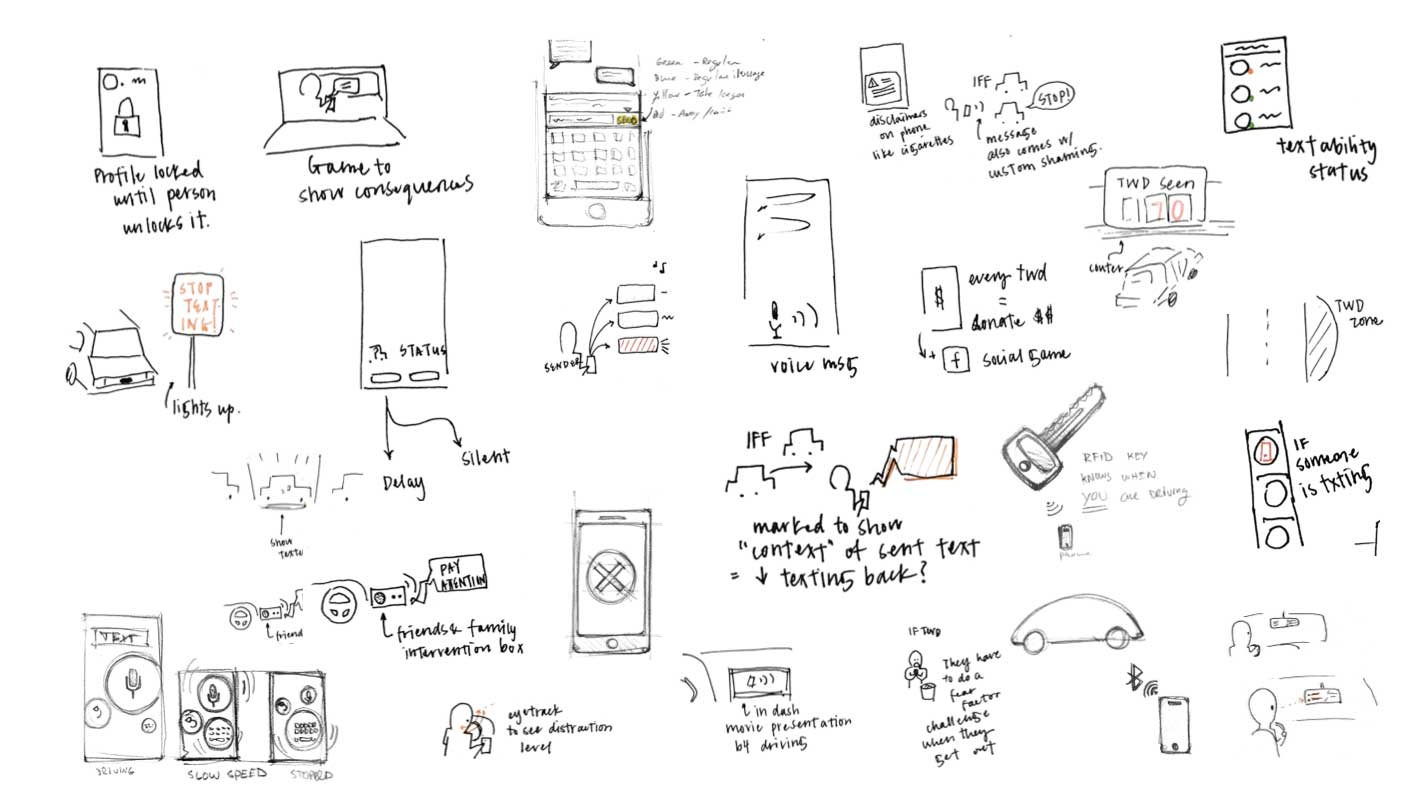 Profile locked
until person
unlocks it.
Game to
show consequences
Green - Regular
Blue - Regular iMessage
Yellow - Take
SEND
disclaimers
on phone
like cigarettes
IFF
STOP!
message
also comes w/
custom shaming.
textability
status
TWD seen
70
conter
STOP
TEXT
ING!
lights up.
STATUS
Delay
Silent
SENDER
voice msg
$
every twd
=
donate $$
+ f social game
TWD
zone
show
texte
IFF
marked to show
"context" of sent text
= ↓ texting back?
RFID KEY
KNOWS WHEN
YOU are DRIVING
PHONE
IF
someone
is txting
friend
PAY
ATTENTION
friends & family
intervention box
TEXT
DRIVING
SLOW SPEED
STOPPED
eyetrack
to see distraction
level
in dash
movie presentation
b4 driving
IF TWD
They have
to do a
fear
factor
challenge
when they
get out